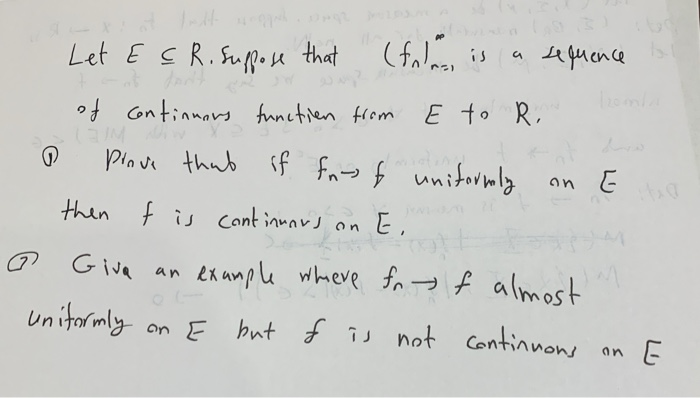 Let E ⊆ R. Suppose that (fₙ)ₙ₌₁^∞ is a sequence
of continuous function from E to R.
① Prove that if fₙ → f uniformly on E
then f is continuous on E.
② Give an example where fₙ → f almost
uniformly on E but f is not continuous on E